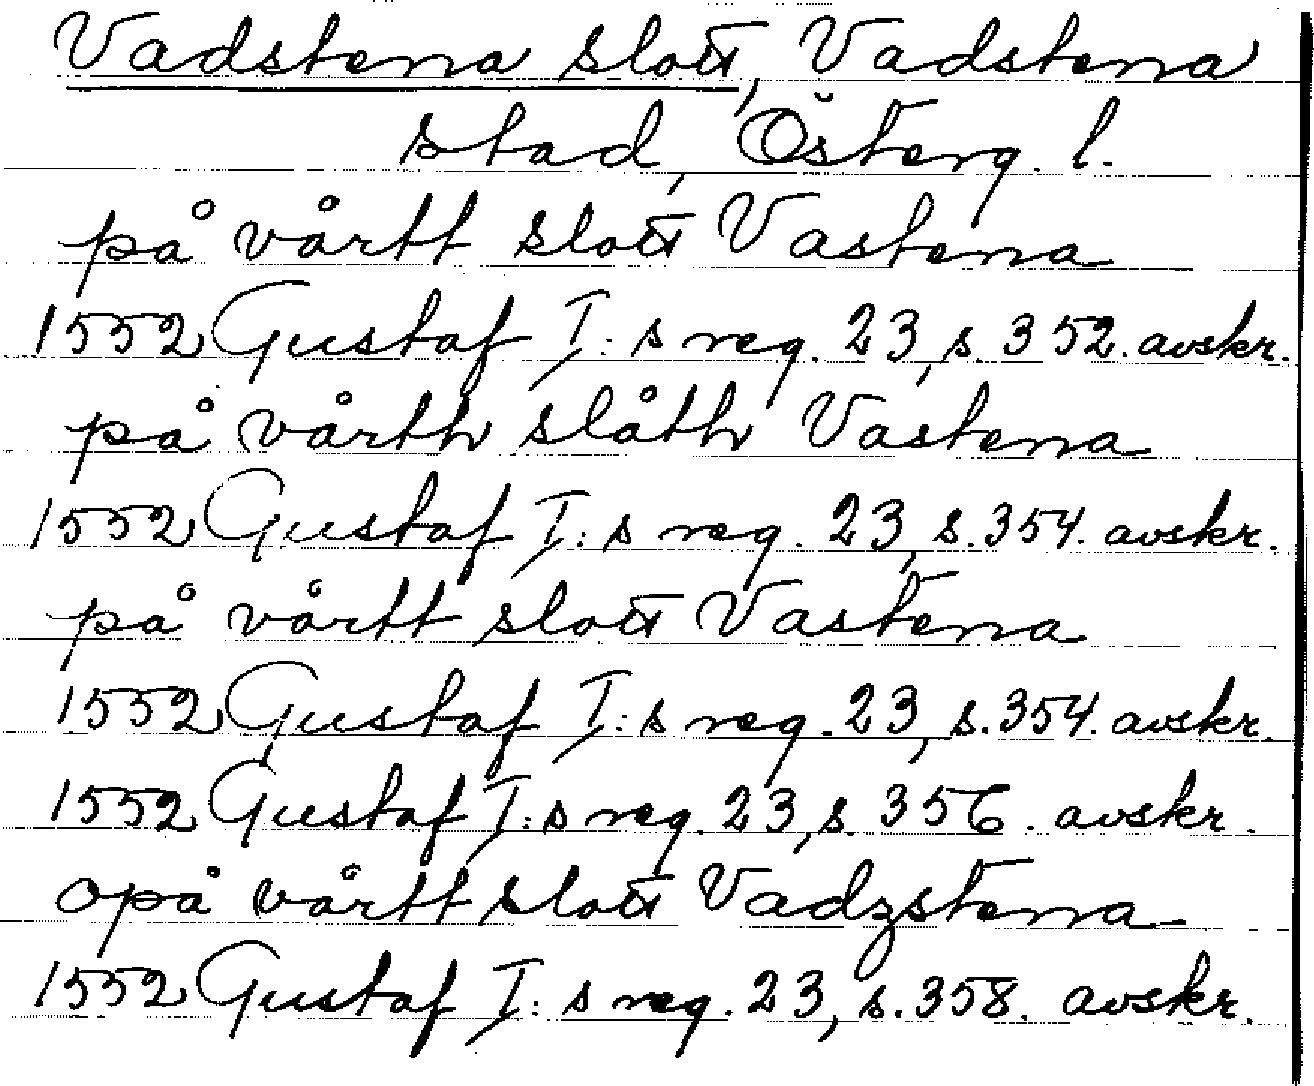 Vadstena slott, Vadstena
stad, Österg. l.
på vårtt slott Vastena
1552 Gustaf I:s reg. 23, s. 352. avskr.
på vårth slåth Vastena
1552 Gustaf I:s reg. 23, s. 354. avskr.
på vårtt slott Vastena
1552 Gustaf I:s reg. 23, s. 354. avskr.
1552 Gustaf I:s reg. 23, s. 356. avskr.
opå vårtt slott Vadzstena
1552 Gustaf I:s reg. 23, s. 358. avskr.